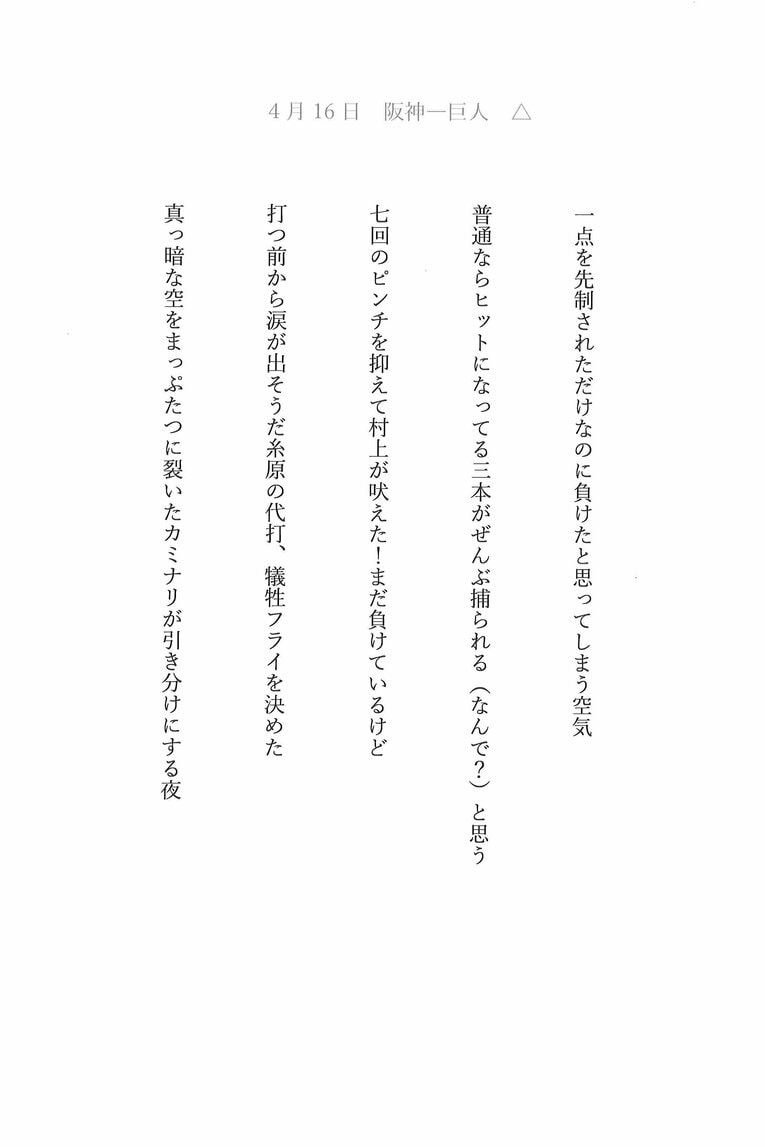 4月16日　阪神―巨人　△
一点を先制されただけなのに負けたと思ってしまう空気
普通ならヒットになってる三本がぜんぶ捕られる（なんで？）と思う
七回のピンチを抑えて村上が吠えた！まだ負けているけど
打つ前から涙が出そうだ糸原の代打、犠牲フライを決めた
真っ暗な空をまっぷたつに裂いたカミナリが引き分けにする夜